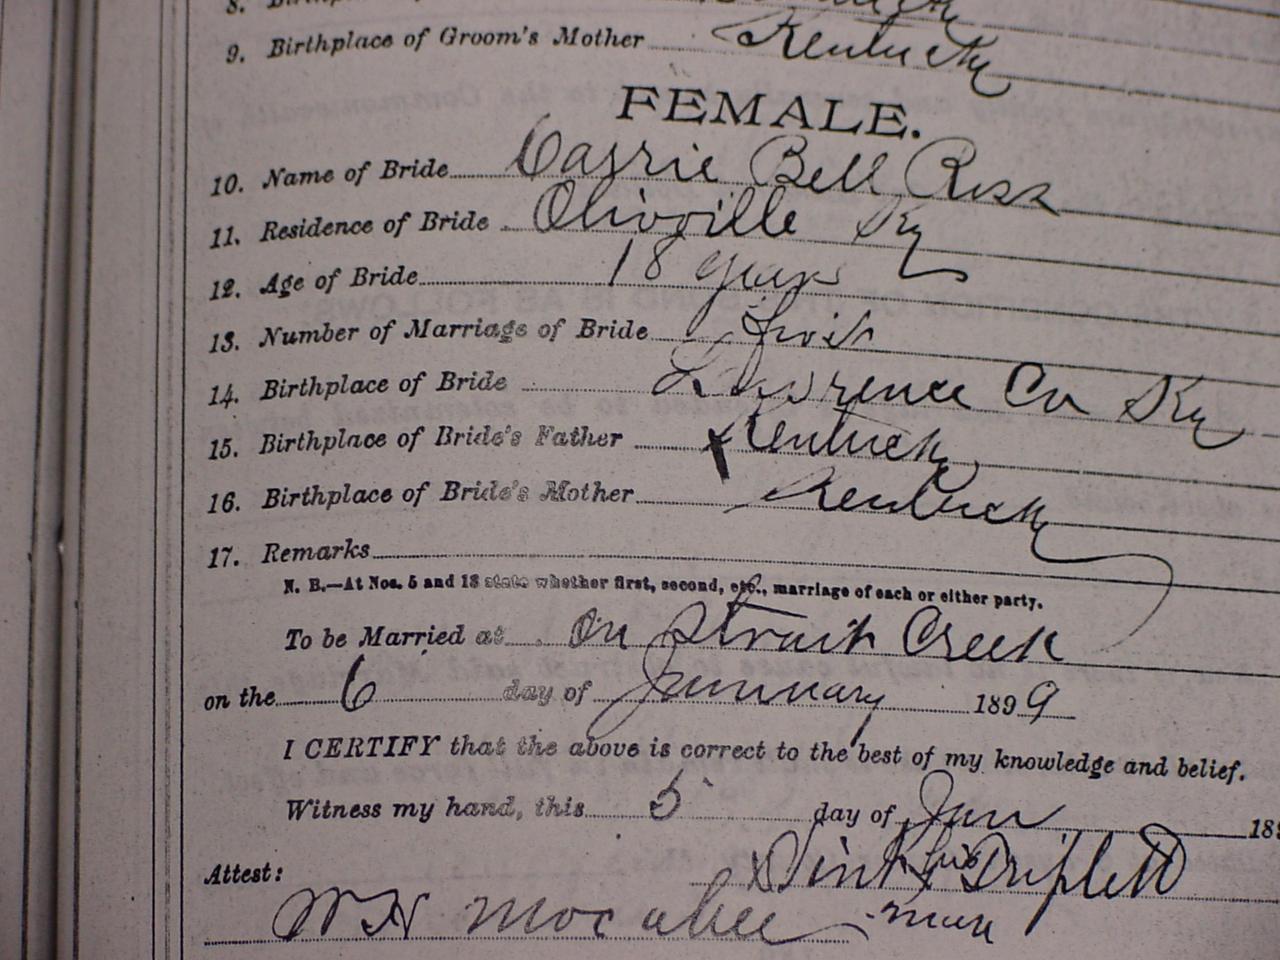 9. Birthplace of Groom's Mother Kentucky
FEMALE.
10. Name of Bride Carrie Bell Ross
11. Residence of Bride Olivville Ky
12. Age of Bride 18 years
13. Number of Marriage of Bride First
14. Birthplace of Bride Lawrence Co Ky
15. Birthplace of Bride's Father Kentucky
16. Birthplace of Bride's Mother Kentucky
17. Remarks
N. B.—At Nos. 5 and 13 state whether first, second, etc., marriage of each or either party.
To be Married at On Strait Creek
on the 6 day of Jannuary 1899
I CERTIFY that the above is correct to the best of my knowledge and belief.
Witness my hand, this 5 day of Jan 189
his
Sink X Triplett
Attest: mark
W H Mocabee